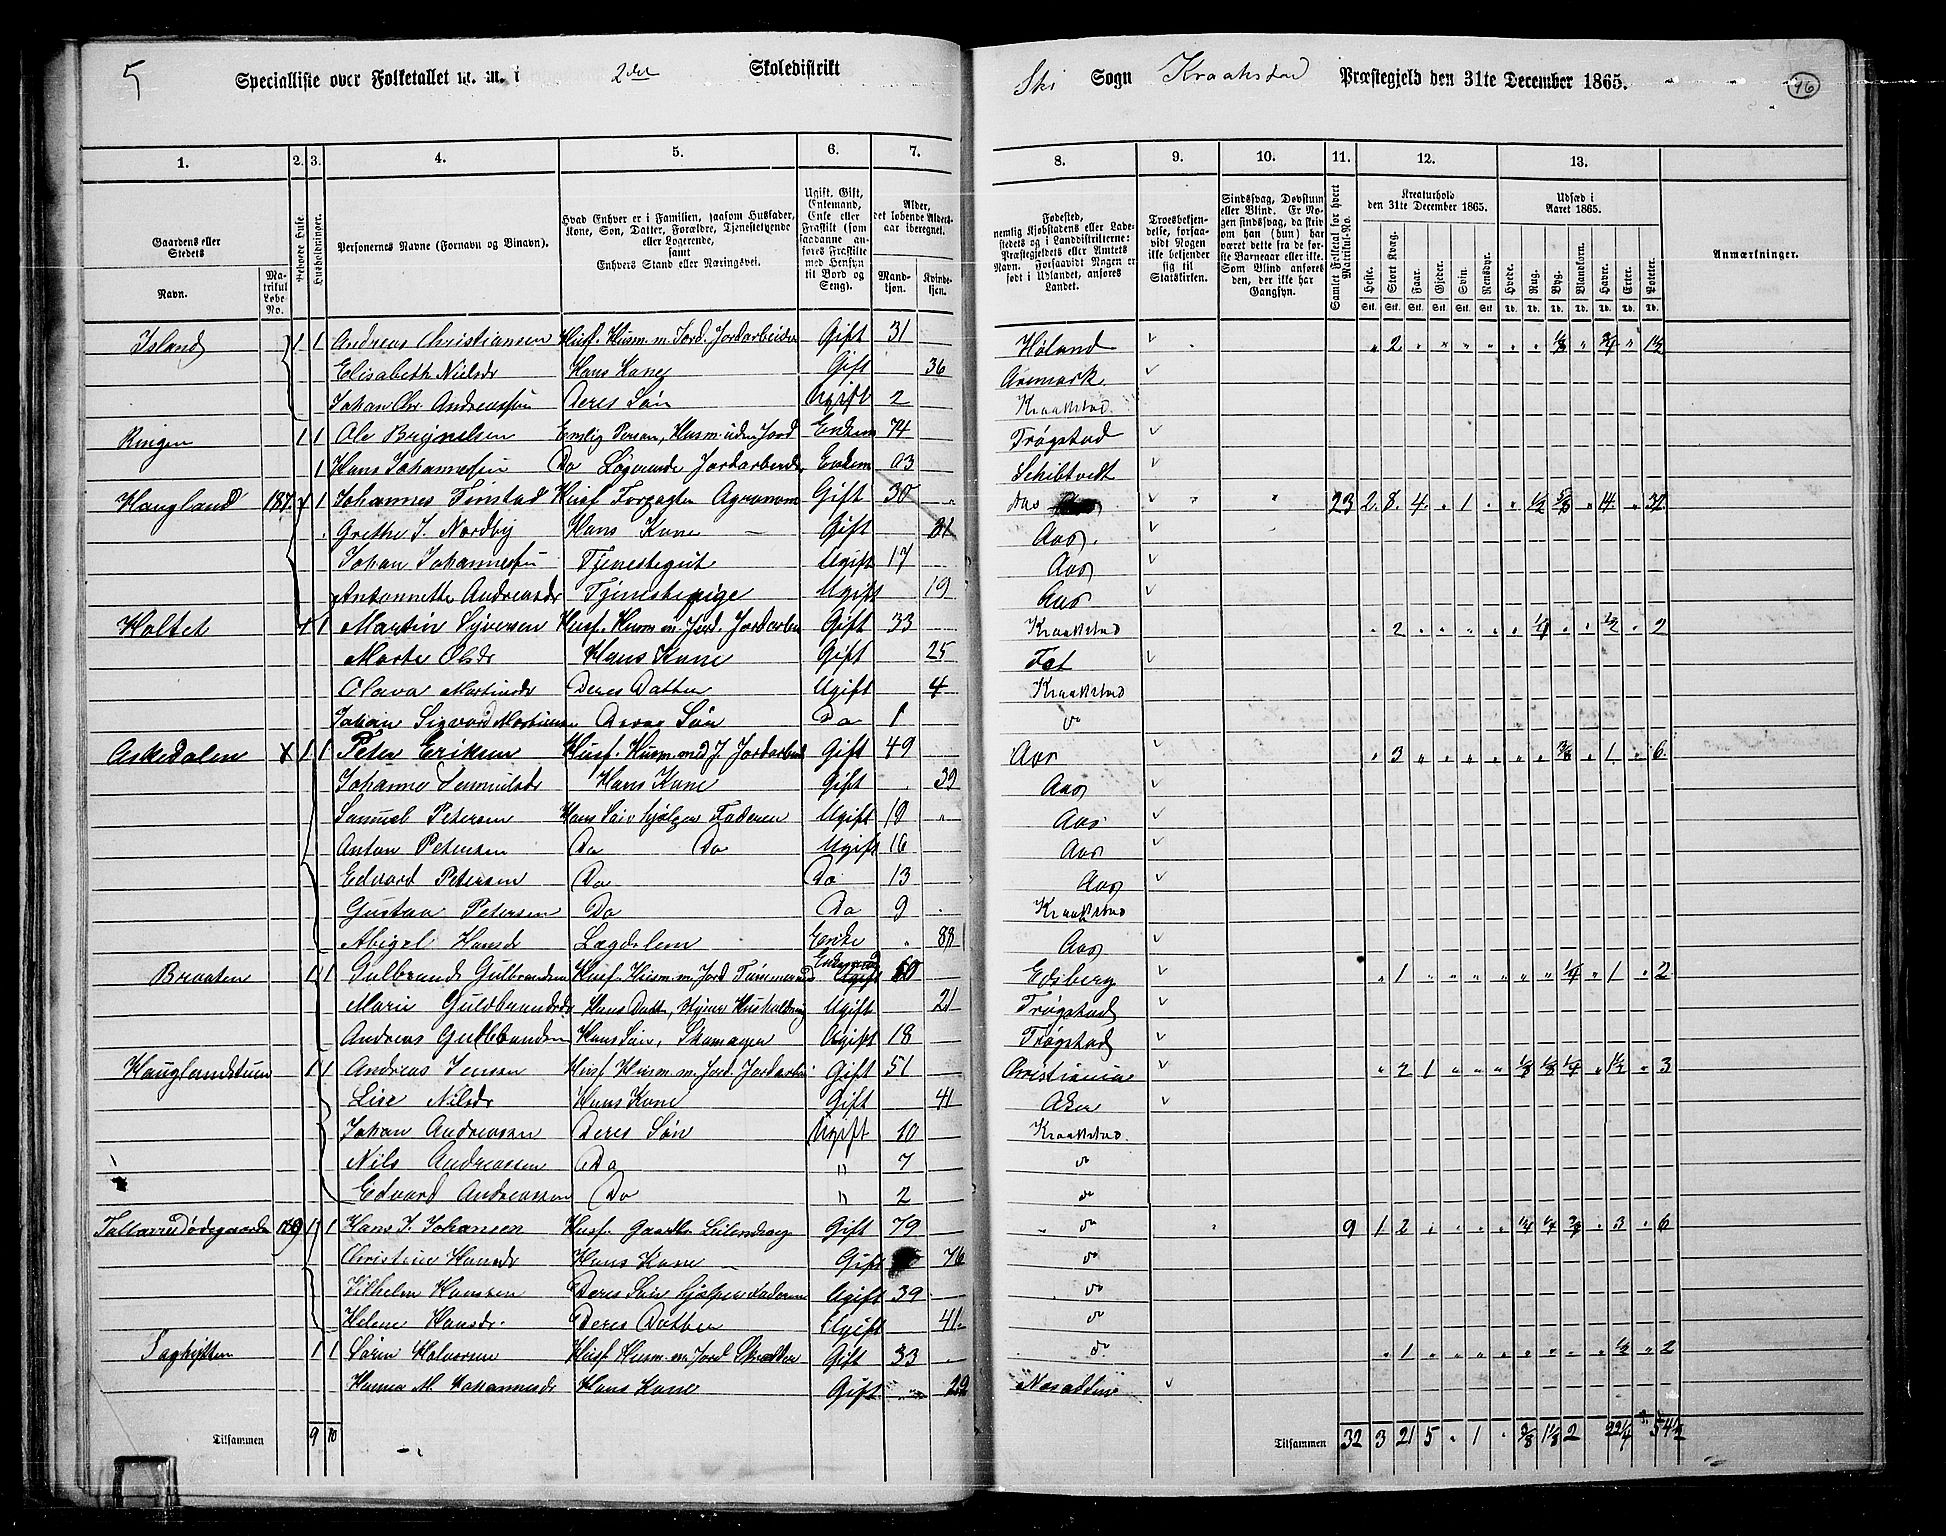 5 Specialliste over Folketallet m. m. i 2det Skoledistrikt Ski Sogn Kraakstad Præstegjeld den 31te December 1865. 96
1. 2. 3. 4. 5. 6. 7. 8. 9. 10. 11. 12. 13.
Gaardens eller Stedets Navn. Matrikul Løbe-No. Beboede Huse. Husholdninger. Personernes Navne (Fornavn og Binavn). Hvad Enhver er i Familien, saasom Husfader, Kone, Søn, Datter, Forældre, Tjenestetyende eller Logerende, samt Enhvers Stand eller Næringsvei. Ugift, Gift, Enkemand, Enke eller Fraskilt (som saadanne anføres Fraskilte med Hensyn til Bord og Seng). Alder, det løbende Aldersaar iberegnet. Mandkjøn. Kvindekjøn. Fødested, nemlig Kjøbstadens eller Ladestedets og i Landdistrikterne: Præstegjeldets eller Amtets Navn. Forsaavidt Nogen er født i Udlandet, anføres Landet. Troesbekjendelse, forsaavidt Nogen ikke bekjender sig til Statskirken. Sindssvag, Døvstum eller Blind. Er Nogen sindssvag, da skriv om han (hun) har været dette fra de første Barneaar eller ikke. Som Blind anføres den, der ikke har Gangsyn. Samlet Folketal for hvert Matrikul-No. Kreaturhold den 31te December 1865. Heste. Stort Kvæg. Faar. Gjeder. Svin. Rensdyr. Udsæd i Aaret 1865. Hvede. Rug. Byg. Blandkorn. Havre. Erter. Poteter. Anmærkninger.
Island 1 1 Andreas Christiansen Husf. Husm. m. Jord. Jordarbeider Gift 31 Høland " 2 " " " " " " 1/8 " 3/4 " 1 1/2
Elisabeth Nielsdr Hans Kone Gift 36 Aremark
Johan Chr Andreassen Deres Søn Ugift 2 Kraakstad
Ringen 1 1 Ole Brynelsen Enslig Person, Husm. uden Jord Enkem 74 Trøgstad
1 Hans Johannessen Do Logerende Jordarbeider Enkem 63 Schibtvedt
Haugland 187 1 1 Johannes Finstad Husf Forpagter Agronom Gift 30 Aas 23 2 8 4 " 1 " " 1/2 5/8 " 14 " 32
Grethe J. Nordby Hans Kone Gift 31 Aas
Johan Johannessen Tjenestegut Ugift 17 Aas
Antonnette Andreasdr Tjenstepige Ugift 19 Aas
Holtet 1 1 Martin Syversen Husf. Husm m. Jord. Jordarbei Gift 33 Kraakstad " 2 " " " " " 1/4 " " 1/2 " 2
Marte Olsdr Hans Kone Gift 25 Fet
Olava Martinsdr Deres Datter Ugift 4 Kraakstad
Johan Sigvard Martinsen Deres Søn Do 1 do
Askedalen X 1 1 Peter Eriksen Husf. Husm. med J. Jordarbeid Gift 49 Aas " 3 " " " " " " 3/8 " 1 " 6
Johanne Semmulsdr Hans Kone Gift 39 Aas
Samuel Petersen Hans Søn hjelper Faderen Ugift 19 Aas
Anton Petersen Do Do Ugift 16 Aas
Edvard Petersen Do Do 13 Aas
Gustav Petersen Do Do 9 Kraakstad
Abigel Hansdr Lægdslem Enke " 88 Aas
Braaten 1 1 Gulbrand Gulbrandsen Husf. Husm. m. Jord Tømmermand Enkemand 60 Edsberg " 1 " " " " " " 1/4 " 1 " 2
Marie Guldbrandsdr Hans Datter, styrer Husholdning Ugift 21 Trøgstad
Andreas Guldbrandsen Hans Søn, Skomager Ugift 18 Trøgstad
Hauglandstuen 1 1 Andreas Jensen Husf Husm. m. Jord. Jordarbei Gift 51 Christiania " 2 1 " " " 1/8 1/8 1/4 " 1 1/2 " 3
Lise Nilsdr Hans Kone Gift 41 Aker
Johan Andreassen Deres Søn Ugift 10 Kraakstad
Nils Andreassen Do " 7 do
Edvard Andreassen Do " 2 do
Tallavsrudødegaarden 189 1 1 Hans J. Johansen Husf. Gaardbr. Leilending Gift 79 do 9 1 2 " " " " 1/4 1/4 3/8 " 3 " 6
Christine Hansdr Hans Kone Gift 76 do
Vilhelm Hansen Deres Søn hjelper Faderen Ugift 39 do
Helene Hansdr. Deres Datter Ugift 41 do
Saghytten 1 1 Søren Halvorsen Husf Husm. m. Jord Skrædder Gift 33 do " 1 " " " " " " " " 1/2 " 2
Hanna M. Johannesdr Hans Kone Gift 29 Næsodden
Tilsammen 9 10 Tilsammen 32 3 21 5 " 1 " 3/8 1 1/8 2 22 1/4 54 1/2